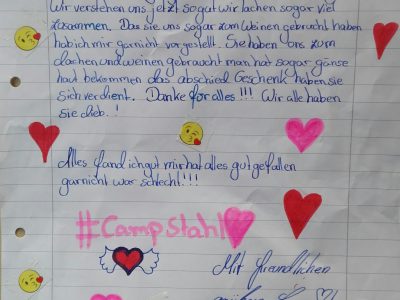 Wir verstehen uns jetzt so gut wir lachen sogar viel
zusammen. Das sie uns sogar zum Weinen gebracht haben
hab ich mir garnicht vorgestellt. Sie haben uns zum
lachen und weinen gebracht man hat sogar gänse
haud bekommen das abschied Geschenk haben sie
sich verdient. Danke for alles!!! Wir alle haben
sie lieb..!
Alles fand ich gut mir hat alles gut gefallen
garnicht war schlecht!!!
#CampStahl
Mit freundlichen